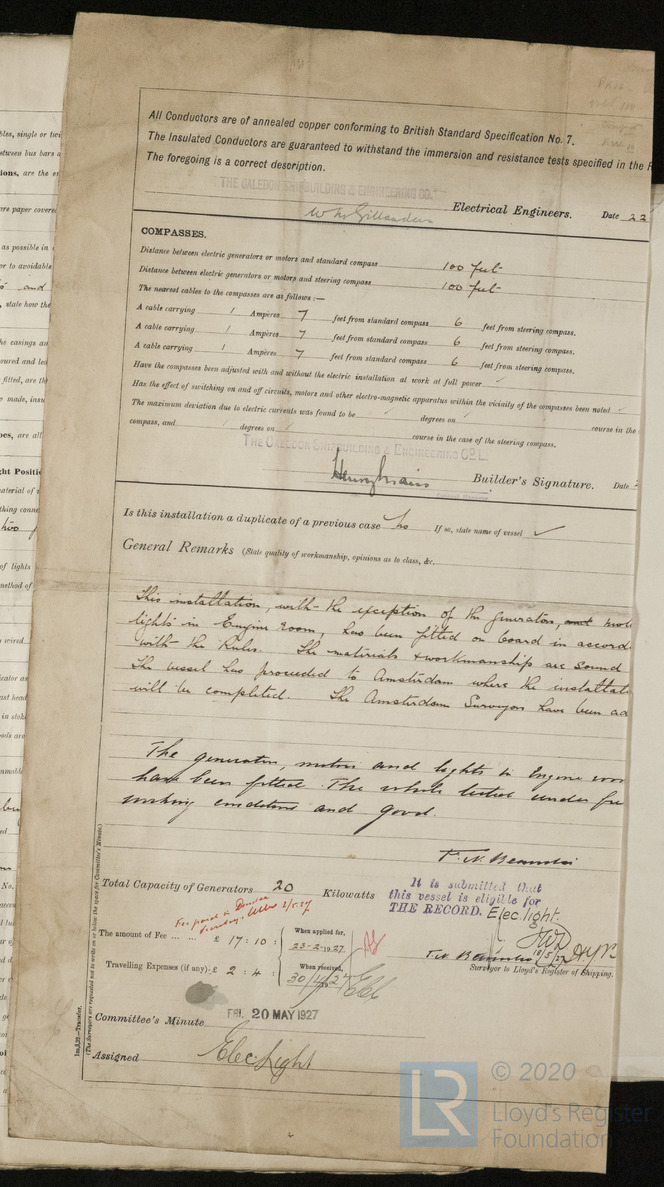 All Conductors are of annealed copper conforming to British Standard Specification No. 7.
The Insulated Conductors are guaranteed to withstand the immersion and resistance tests specified in the R
The foregoing is a correct description.
THE CALEDON SHIPBUILDING & ENGINEERING CO. LD.
Electrical Engineers. Date 22
COMPASSES.
Distance between electric generators or motors and standard compass 100 feet
Distance between electric generators or motors and steering compass 100 feet
The nearest cables to the compasses are as follows:—
A cable carrying 1 Ampères 7 feet from standard compass 6 feet from steering compass.
A cable carrying 1 Ampères 7 feet from standard compass 6 feet from steering compass.
A cable carrying 1 Ampères 7 feet from standard compass 6 feet from steering compass.
Have the compasses been adjusted with and without the electric installation at work at full power ✓
Has the effect of switching on and off circuits, motors and other electro-magnetic apparatus within the vicinity of the compasses been noted ✓
The maximum deviation due to electric currents was found to be degrees on course in the
compass, and degrees on course in the case of the steering compass.
THE CALEDON SHIPBUILDING & ENGINEERING CO. LD.
Builder's Signature. Date
Is this installation a duplicate of a previous case No If so, state name of vessel ✓
General Remarks (State quality of workmanship, opinions as to class, &c.
This installation, with the exception of the generator, and
lights in Engine room, has been fitted on board in accord
with the Rules. The materials & workmanship are sound
The vessel has proceeded to Amsterdam where the installat
will be completed. The Amsterdam Surveyors have been ad
The generator, motors and lights in Engine roo
have been fitted. The whole tested under fu
working conditions and good.
Total Capacity of Generators 20 Kilowatts
It is submitted that
this vessel is eligible for
THE RECORD. Elec. light.
The amount of Fee ... ... £ 17 : 10 : When applied for, 23-2-1927
Travelling Expenses (if any) £ 2 : 4 : When received,
Surveyor to Lloyd's Register of Shipping.
Committee's Minute FRI. 20 MAY 1927
Assigned Elec. Light
Im.8.25—Transfer.
(The Surveyors are requested not to write on or below the space for Committee's Minute.)
LR © 2020
Lloyd's Register
Foundation